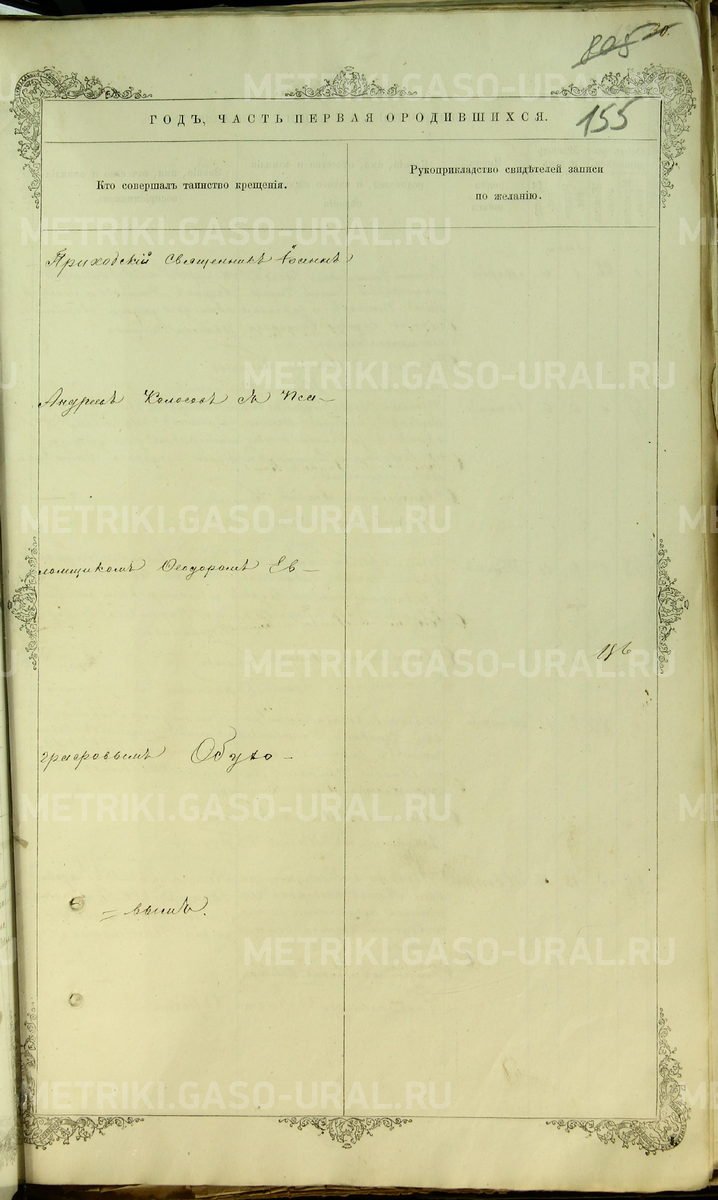 155
ГОДЪ, ЧАСТЬ ПЕРВАЯ О РОДИВШИХСЯ.
Кто совершалъ таинство крещенія.
Рукоприкладство свидѣтелей записи
по желанію.
Приходскій Священникъ Іоаннъ
Андреевъ Колосовъ съ Пса-
ломщикомъ Ѳеодоромъ Ев-
графовымъ Обухо-
=вымъ.
METRIKI.GASO-URAL.RU